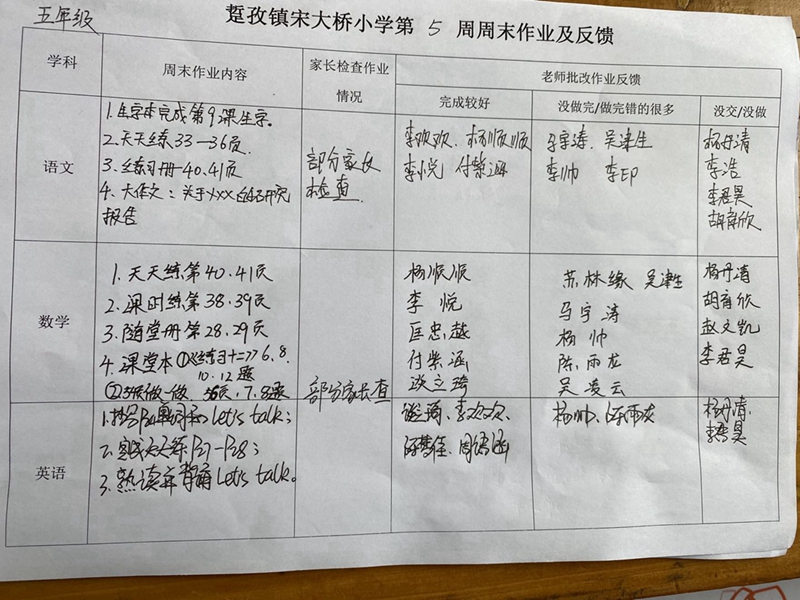 五年级
踅孜镇宋大桥小学第 5 周周末作业及反馈
学科
周末作业内容
家长检查作业情况
老师批改作业反馈
完成较好
没做完/做完错的很多
没交/没做
语文
1.生字本完成第9课生字。
2.天天练33—36页.
3.练习册-40.41页
4.大作文：关于XXX的研究
报告
部分家长
检查.
李欢欢、杨顺顺
李悦 付紫涵
马宇涛、吴津生
李帅 李印
杨丹清
李浩
李君昊
胡育欣
数学
1.天天练第40.41页
2.课时练第38.39页
3.随堂册第28.29页
4.课堂本①《练习十二》6.8.
10.12题
②58页做一做、 7.8题
部分家长查
杨顺顺
李 悦
匡忠越
付紫涵
苏林缘 吴津生
马宇涛
杨 帅
陈雨龙
吴凌云
杨丹清
胡育欣
赵文凯
李君昊
英语
Let's talk;
2.完成天天练P27-P28;
3.熟读并背诵Let's talk。
李欢欢、
周语涵
杨帅、陈雨龙
杨丹清、
李君昊